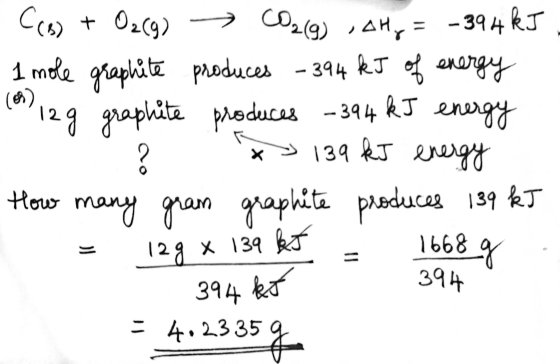 C(s) + O2(g) ⟶ CO2(g) , ΔHr = -394 kJ
1 mole graphite produces -394 kJ of energy
(or)
12g graphite produces -394 kJ energy
? × 139 kJ energy
How many gram graphite produces 139 kJ
= 12g × 139 kJ / 394 kJ = 1668 g / 394
= 4.2335 g